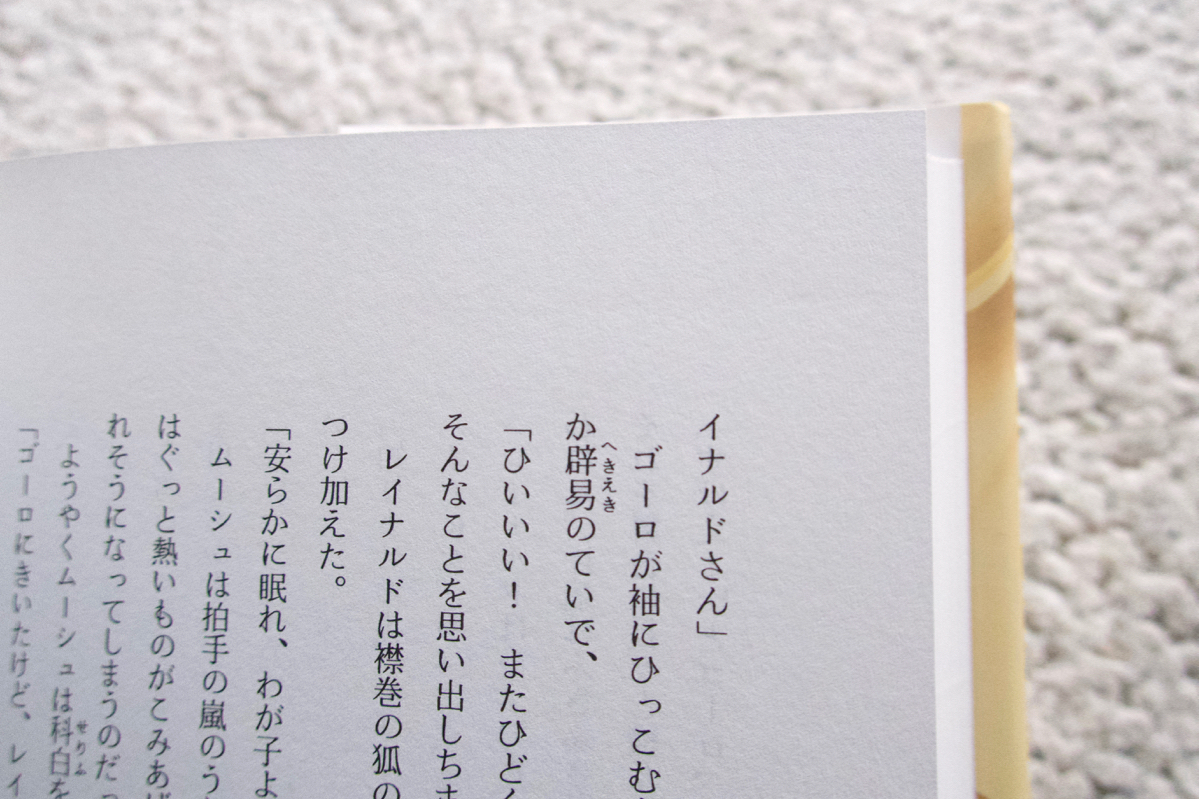 イナルドさん」
ゴーロが袖にひっこむ
か辟易のていで、
へきえき
「ひいいい！ またひどく
そんなことを思い出しち
レイナルドは襟巻の狐の
つけ加えた。
「安らかに眠れ、わが子よ
ムーシュは拍手の嵐のう
はぐっと熱いものがこみあげ
れそうになってしまうのだっ
ようやくムーシュは科白を
せりふ
「ゴーロにきいたけど、レイ